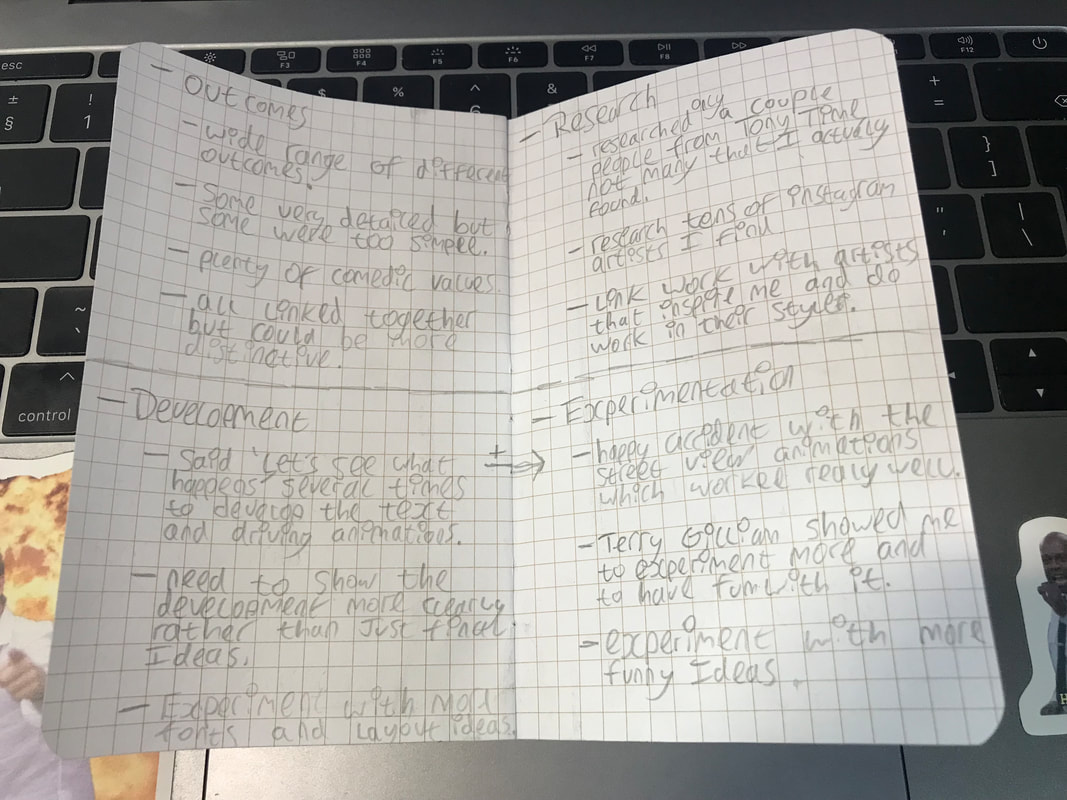 - Outcomes
- wide range of different
outcomes.
- Some very detailed but
some were too simple.
- plenty of comedic values.
- all linked together
but could be more
distinctive.
- Development
- Said 'Let's see what
happens' several times
to develop the text
and driving animations.
- need to show the
development more clearly
rather than Just final
Ideas.
- Experiment with more
fonts and Layout ideas.
- Research
- researched only a couple
people from Tony Time
not many that I actually
found.
- research tons of instagram
artists I find
- Link work with artists
that inspire me and do
work in their styles.
- Experimentation
- happy accident with the
street view animations
which worked really well.
- Terry Gilliam showed me
to experiment more and
to have fun with it.
- experiment with more
funny Ideas.
esc
F3
F4
F5
F6
F7
F8
F12
±
§
!
1
$
%
^
6
&
+
=
}
]
"
'
|
\
~
`
control
H